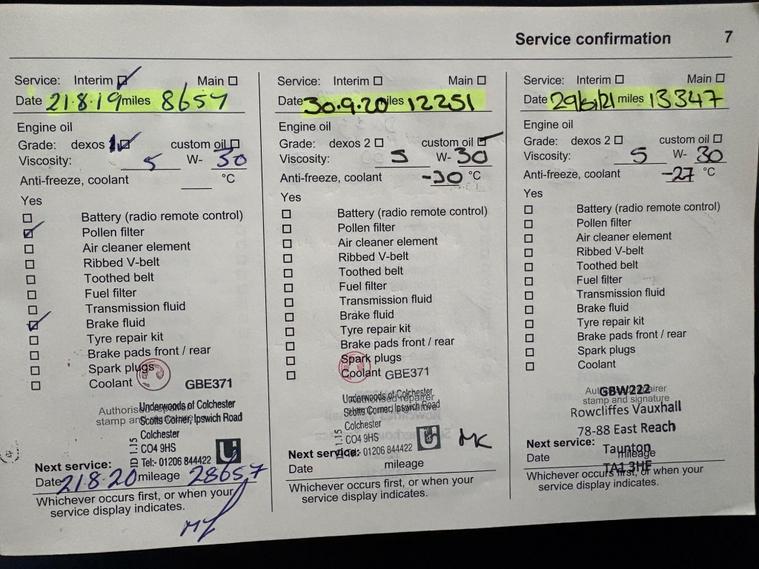 Service confirmation 7
Service: Interim ☑ Main ☐
Date 21.8.19 miles 8657
Engine oil
Grade: dexos 1 ☑ custom oil ☐
Viscosity: 5 W- 30
Anti-freeze, coolant °C
Yes
☐ Battery (radio remote control)
☑ Pollen filter
☐ Air cleaner element
☐ Ribbed V-belt
☐ Toothed belt
☐ Fuel filter
☐ Transmission fluid
☑ Brake fluid
☐ Tyre repair kit
☐ Brake pads front / rear
☐ Spark plugs
☐ Coolant GBE371
Underwoods of Colchester
Scotts Corner, Ipswich Road
Colchester
CO4 9HS
Tel:- 01206 844422
ID 1.15
Next service:
Date 21.8.20 mileage 28657
Whichever occurs first, or when your
service display indicates.
Service: Interim ☐ Main ☐
Date 30.9.20 miles 12251
Engine oil
Grade: dexos 2 ☐ custom oil ☑
Viscosity: 5 W- 30
Anti-freeze, coolant -30 °C
Yes
☐ Battery (radio remote control)
☐ Pollen filter
☐ Air cleaner element
☐ Ribbed V-belt
☐ Toothed belt
☐ Fuel filter
☐ Transmission fluid
☐ Brake fluid
☐ Tyre repair kit
☐ Brake pads front / rear
☐ Spark plugs
☐ Coolant GBE371
Underwoods of Colchester
Scotts Corner, Ipswich Road
Colchester
CO4 9HS
Tel:- 01206 844422
MK
Next service:
Date mileage
Whichever occurs first, or when your
service display indicates.
Service: Interim ☐ Main ☐
Date miles 13347
Engine oil
Grade: dexos 2 ☐ custom oil ☐
Viscosity: 5 W- 30
Anti-freeze, coolant -27 °C
Yes
☐ Battery (radio remote control)
☐ Pollen filter
☐ Air cleaner element
☐ Ribbed V-belt
☐ Toothed belt
☐ Fuel filter
☐ Transmission fluid
☐ Brake fluid
☐ Tyre repair kit
☐ Brake pads front / rear
☐ Spark plugs
☐ Coolant
GBW222
stamp and signature
Rowcliffes Vauxhall
78-88 East Reach
Taunton
TA1 3HF
Next service:
Date mileage
Whichever occurs first, or when your
service display indicates.